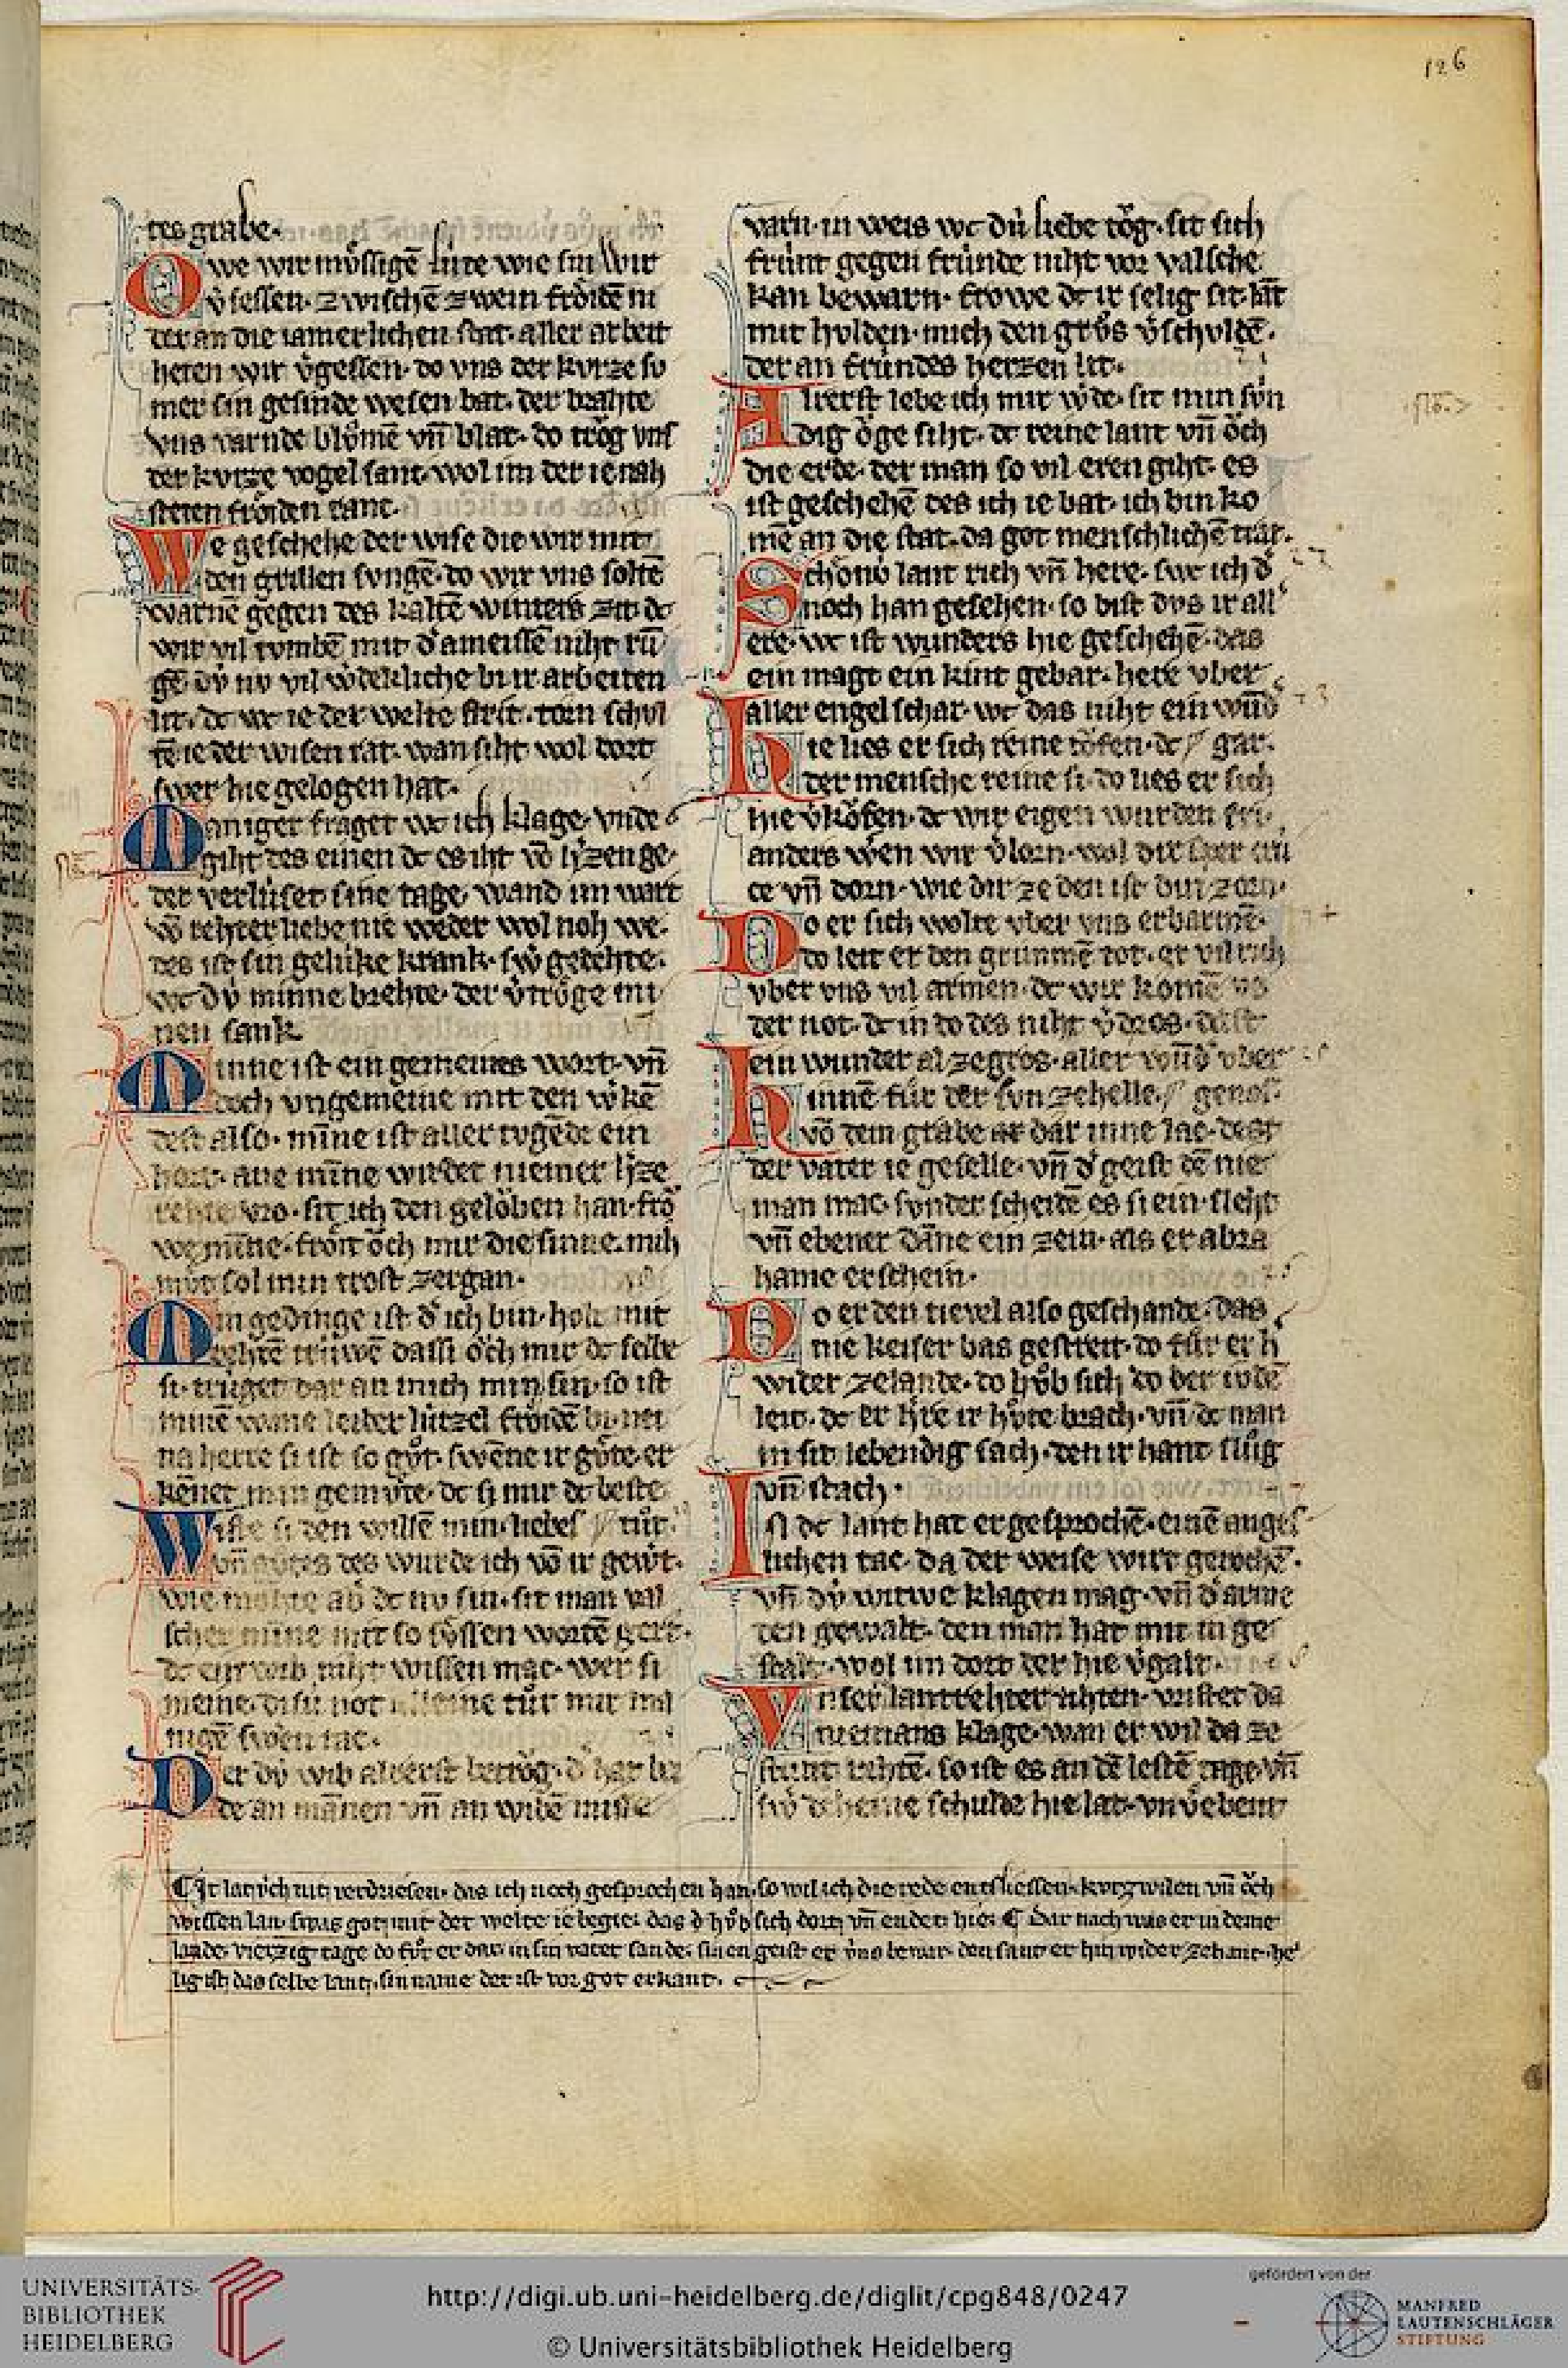 126
tes grabe.
Owe wir mv̊ssigē lúte wie sin wir
v̓sessen. zwischē zwein frôidē ni
der an die iamerlichen stat. aller arbeit
heten wir v̓gessen. do vns der kvrze sv
mer sin gesinde wesen bat. der brahte
vns varnde blv̊mē vn̄ blat. do trǒg vns
der kvrze vogel sant. wol im der ie nah
steten frôiden rant.
We geschehe der wise die wir mit
den grillen svngē. do wir vns soltē
warnē gegen des kaltē winters zit. dc
wir vil tvmbē mit d̓ ameissē niht rū
gē dv́ nv vil wd̓ekliche bi ir arbeiten
lit. dc wc ie der welte strit. torn schvl
tē ie der wisen rat. wan siht wol dort
swer hie gelogen hat.
Maniger fraget wc ich klage. vnde
giht des einen dc es iht vō h̓zen ge.
der verlúset sine tage. wand im wart
vō rehter liebe nie weder wol noh we.
des ist sin gelúke krank. sw̓ gedehte.
wc dv́ minne brehte. der v̓trv̊ge mi
nen sank.
Minne ist ein gemeines wort. vn̄
doch vngemeine mit den w̓kē
dest also. mīne ist aller tvgēde ein
hort. ane mīne wirdet niemer h̓ze
rehte vro. sit ich den gelǒben han. frǒ
we mīne. frôit ǒch mir die sinne. mih
mv̊t sol min trost zergan.
Min gedinge ist d̓ ich bin. holt mit
rehtē trúwē dassi ǒch mir dc selbe
si. trúget dar an mich min sin. so ist
minē wane leider lútzel frôidē bi. nei
na herre si ist so gv̊t. swēne ir gv̊te. er
kēnet min gemv̊te. dc si mir dc beste
Wiste si den willē min. liebes tv̊t.
vn̄ gv̊tes des wurde ich vō ir gew̓t.
wie mohte ab̓ dc nv sin. sit man val
scher mīne mit so sv̊ssen wortē gert.
dc ein wib niht wissen mac. wer si
meine. disú not alleine tv̊t mir ma
nigē sweren tac.
Der dv́ wib alrerst betrǒg. d̓ hat bei
de an mānen vn̄ an wibē misse
varn. in weis wc dú liebe tǒg. sit sich
frúnt gegen frúnde niht vor valsche
kan bewarn. frowe dc ir selig sit. lāt
mit hvlden. mich den grv̊s v̓schvldē.
der an frúndes herzen lit.
Alrerst lebe ich mir w̓de. sit min svn
dig ǒge siht. dc reine lant vn̄ ǒch
die erde. der man so vil eren giht. es
ist geschehē des ich ie bat. ich bin ko
mē an die stat. da got menschlichē trat.
Schônv́ lant rich vn̄ here. swc ich d̓
noch han gesehen. so bist dvs ir all̓
ere. wc ist wunders hie geschehē. das
ein magt ein kint gebar. here vber
aller engel schar. wc das niht ein wūd̓
Hie lies er sich reine tǒfen. dc gar.
der mensche reine si. do lies er sich
hie v̓kǒfen. dc wir eigen wurden fri.
anders w̓en wir v̓lorn. wol dir sper crú
ce vn̄ dorn. we dir heiden ist dir zorn.
Do er sich wolte vber vns erbarmē.
do leit er den grimmē tot. er vil rich
vber vns vil armen. dc wir komē vs
der not. dc in do des niht v̓dros. dc ist
ein wunder al ze gros. aller wūd̓ vber
Hinnē fûr der svn ze helle. genos.
vō dem grabe er dar inne lac. dest
der vater ie geselle. vn̄ d̓ geist dē nie
man mac. svnder scheidē es si ein. sleht
vn̄ ebener dāne ein zein. als er abra
hame erschein.
Do er den tievel also geschande. das
nie keiser bas gestreit. do fûr er h̓
wider ze lande. do hv̊b sich do der ivdē
leit. dc er h̓re ir hv̊te brach. vn̄ dc man
in sit lebendig sach. den ir hant slûg
vn̄ stach.
In dc lant hat er gesprochē. einē anges
lichen tac. da der weise wirt gerochē.
vn̄ dv́ witwe klagen mag. vn̄ d̓ arme
den gewalt. den man hat mit in ge
stalt. wol im dort der hie v̓galt.
Vnser lantrehter rihten. vristet da
niemans klage. wan er wil da ze
stunt rihtē. so ist es an dē lestē tage. vn̄
sw̓ dekeine schulde hie lat. vnv̓ebent
¶ Ir lat v́ch nit verdriesen. das ich noch gesprochen han. so wil ich die rede entsliessen. kvrzwilen vn̄ ǒch
wissen lan. swas got mit der welte ie begie. das d̓ hv̊b sich dort vn̄ endet hie. ¶ Dar nach was er in deme
lande. vierzig tage do fv̊r er dar. in sin vater sande. sinen geist er v̓ns bewar. den sant er hin wider zehant. he̓
lig ist das selbe lant. sin name der ist vor got erkant.
UNIVERSITÄTS-
BIBLIOTHEK
HEIDELBERG
http://digi.ub.uni-heidelberg.de/diglit/cpg848/0247
© Universitätsbibliothek Heidelberg
gefördert von der
MANFRED
LAUTENSCHLÄGER
STIFTUNG